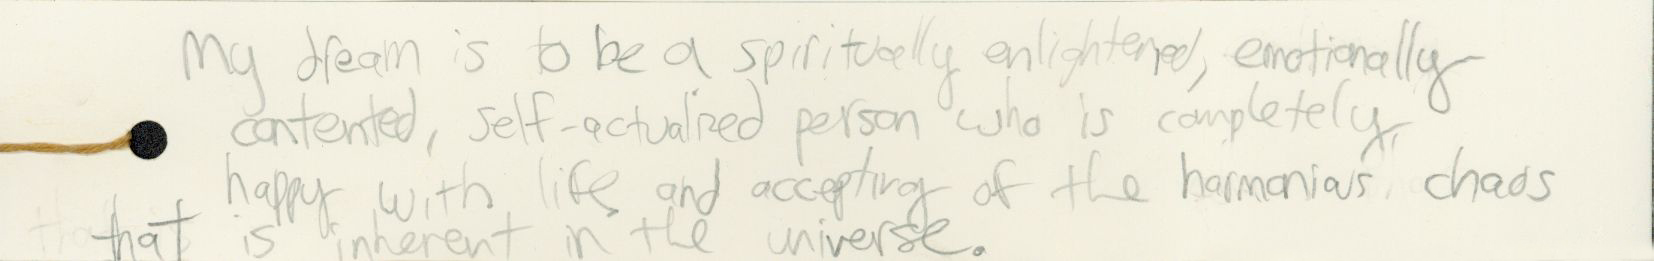 My dream is to be a spiritually enlightened, emotionally
contented, self-actualized person who is completely,
happy with life and accepting of the harmonious chaos
that is inherent in the universe.